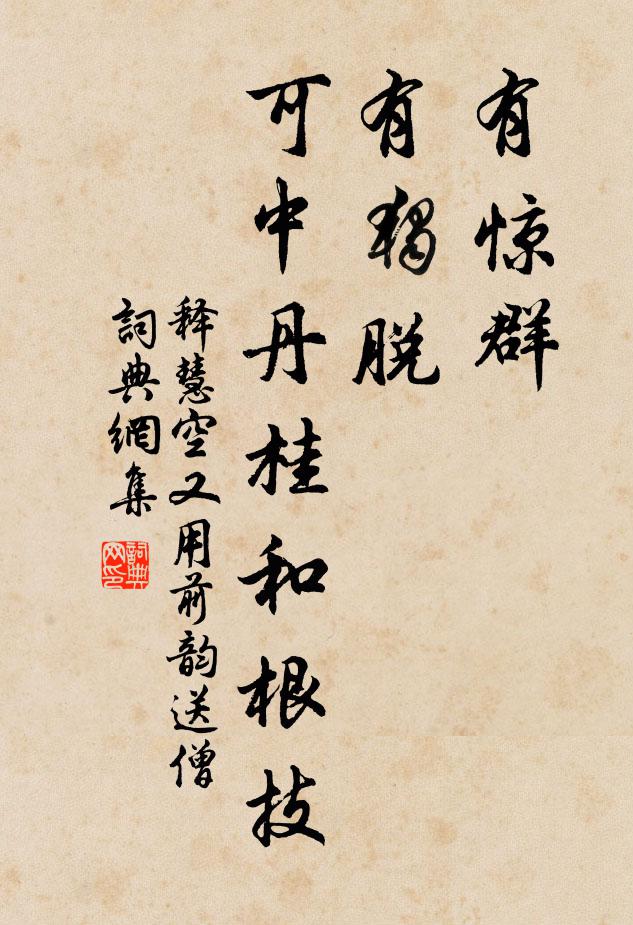 有惊群
有獨脱
可中丹桂和根技
释慧空又用前韵送僧
詞典網集
詞典
网印